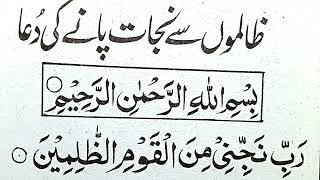 ظالموں سے نجات پانے کی دُعا
بِسْمِ اللهِ الرَّحْمٰنِ الرَّحِيْمِ
رَبِّ نَجِّنِيْ مِنَ الْقَوْمِ الظّٰلِمِيْنَ